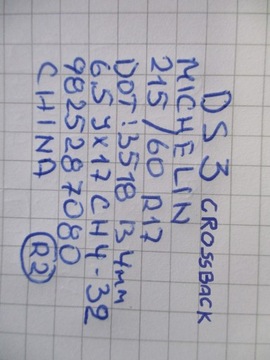 DS 3 CROSSBACK
MICHELIN
215/60 R17
DOT: 3518 134mm
6.5 J x 17 CH4-32
9825287080
CHINA R2